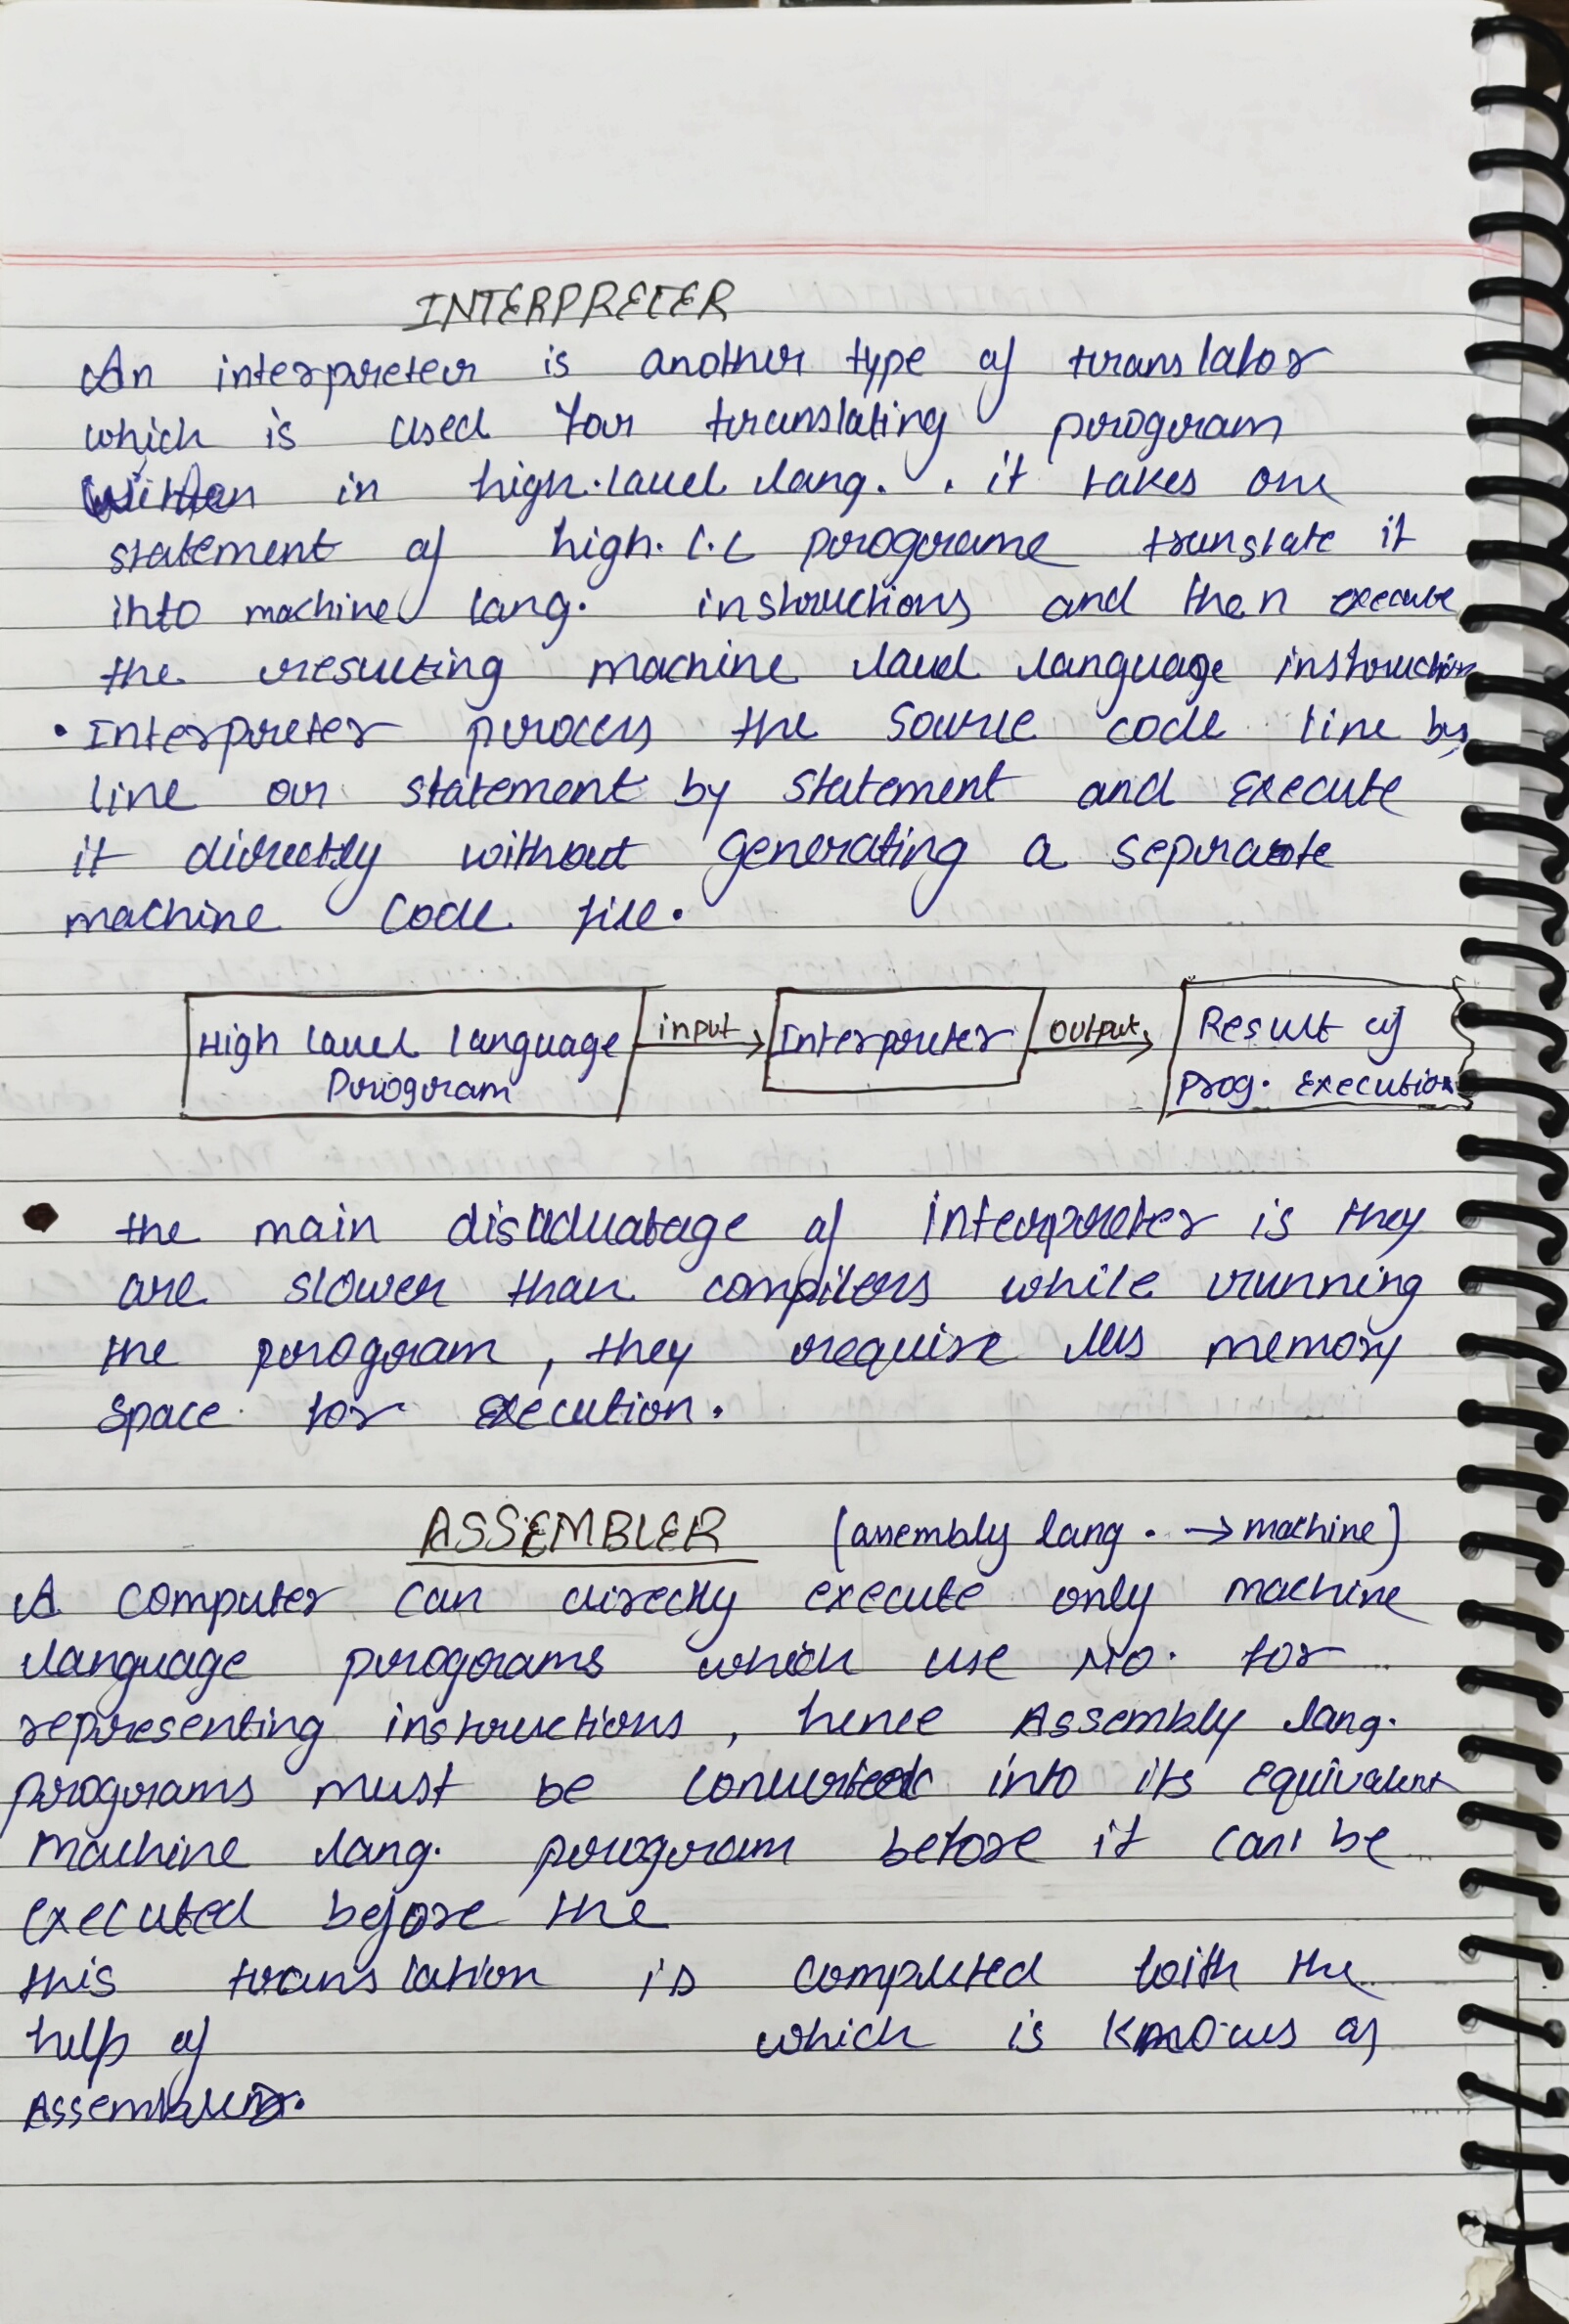 INTERPRETER
An interpreter is another type of translator
which is used for translating program
written in high.level lang. . it takes one
statement of high. L.L programe translate it
into machine lang. instructions and then execute
the resulting machine level language instruction
• Interpreter process the source code line by
line or statement by statement and execute
it directly without generating a seprate
machine code file.
High level language input Interpreter output Result of
Program prog. execution
• the main disadvatage of interpreter is they
are slower than compilers while running
the program, they require less memory
space for execution.
ASSEMBLER (assembly lang. → machine)
A computer can directly execute only machine
language programs which use No. for
representing instructions, hence Assembly lang.
programs must be converted into its equivalent
machine lang. program before it can be
executed before the
this translation is completed with the
help of which is knows as
Assembler.